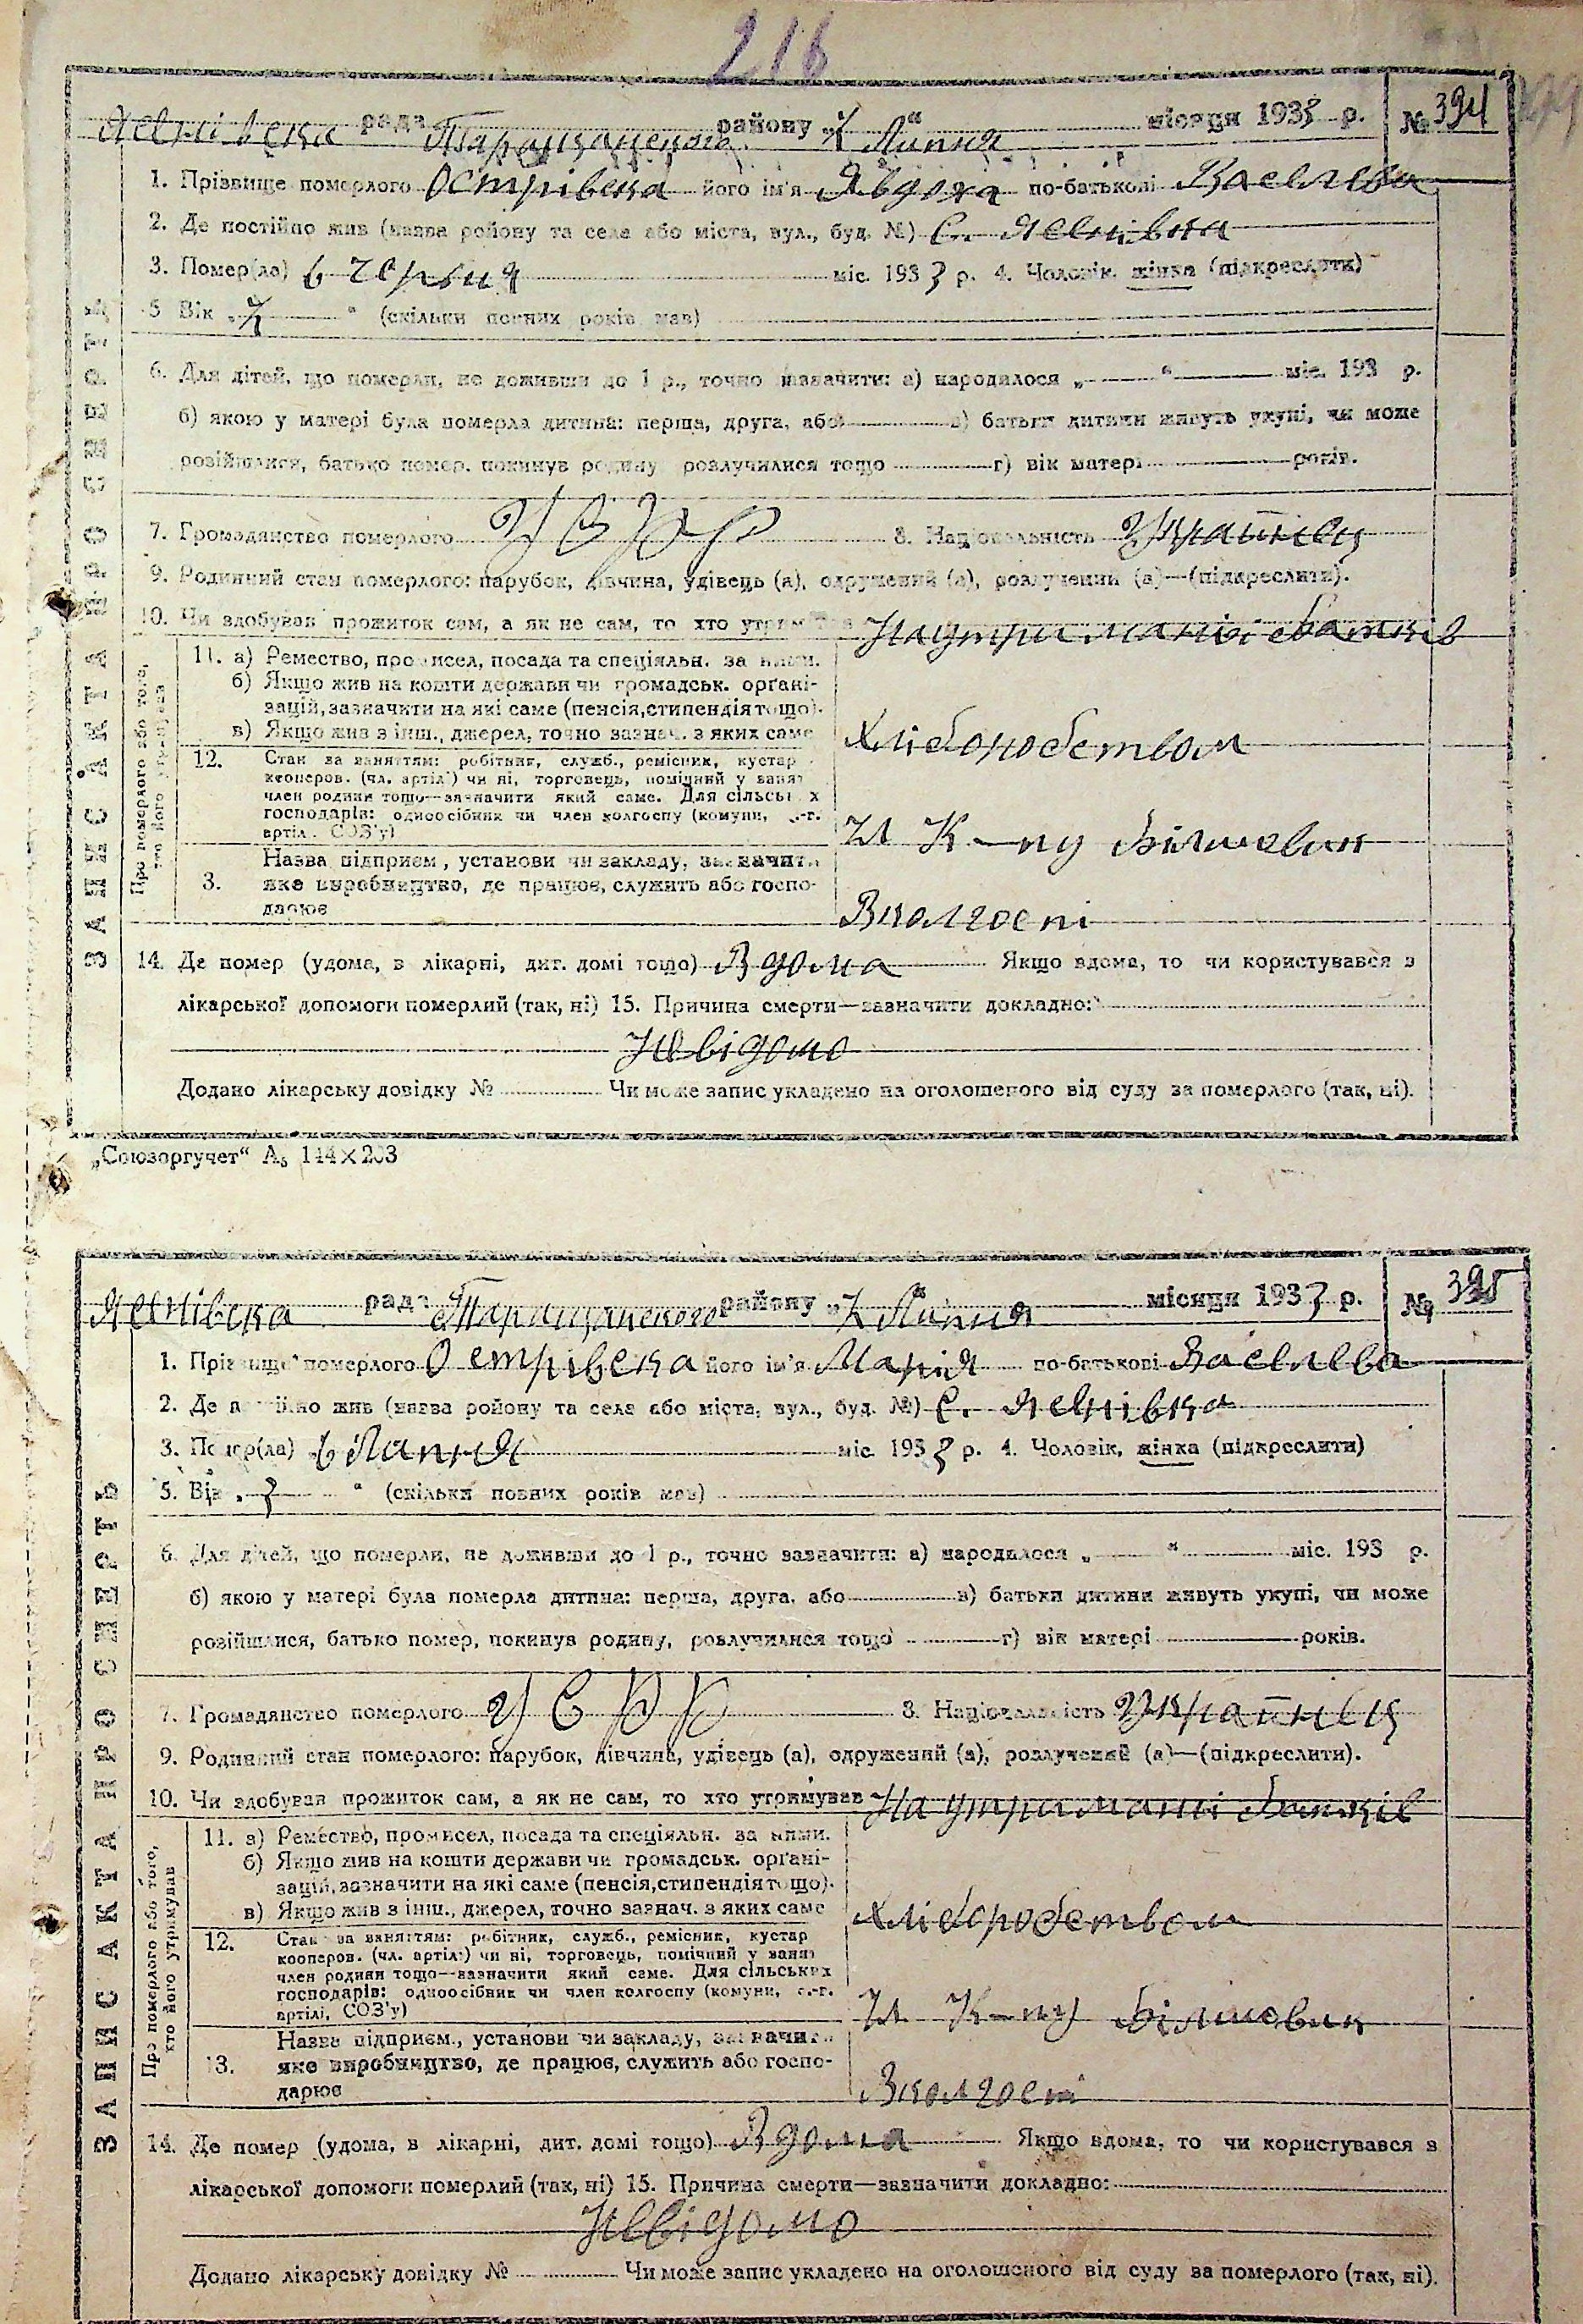 216
Яснівська рада Таращанського району „7“ Липня місяця 1933 р. № 394
1. Прізвище померлого Острівська його ім'я Явдоха по-батькові Василева
2. Де постійно жив (назваройону та села або міста, вул., буд. №) С. Яснівка
3. Помер(ла) 6 червня міс. 1933 р. 4. Чоловік, жінка (підкреслити)
5 Вік „ “ (скільки повних років мав)
6. Для дітей, що померли, не доживши до 1 р., точно зазначити: а) народилося „ “ міс. 193 р.
б) якою у матері була померла дитина: перша, друга, або в) батьки дитини живуть укупі, чи може
розійшлися, батько помер, покинув родину розлучилися тощо г) вік матері років.
7. Громадянство померлого УСРР 8. Національність Українец
9. Родинний стан померлого: парубок, дівчина, удівець (а), одружений (а), розлучений (а)—(підкреслити).
10. Чи здобував прожиток сам, а як не сам, то хто утримував На утриманні батьків
Про померлого або того, хто його утримував
11. а) Ремество, промисел, посада та спеціяльн. за ними.
б) Якщо жив на кошти держави чи громадськ. орґані-
зацій, зазначити на які саме (пенсія, стипендія тощо).
в) Якщо жив з інш., джерел, точно зазнач. з яких саме Хліборобством
12. Стан за заняттям: робітник, служб., ремісник, кустар
кооперов. (чл. артілі) чи ні, торговець, помічний у занят
член родини тощо—зазначити який саме. Для сільських
господарів: одноосібник чи член колгоспу (комуни, с.-г. Чл К-пу Більшовик
артілі, СОЗ'у)
Назва підприєм., установи чи закладу, зазначити
3. яке виробництво, де працює, служить або госпо-
дарює В колгоспі
14. Де помер (удома, в лікарні, дит. домі тощо) Вдома Якщо вдома, то чи користувався з
лікарської допомоги померлий (так, ні) 15. Причина смерти—зазначити докладно:
Невідомо
Додано лікарську довідку № Чи може запис укладено на оголошеного від суду за померлого (так, ні).
ЗАПИС АКТА ПРО СМЕРТЬ
„Союзоргучет“ А₅ 144×203
Яснівська рада Таращанського району „7“ Липня місяця 1933 р. № 395
1. Прізвище померлого Острівська його ім'я Марія по-батькові Василева
2. Де постійно жив (назва ройону та села або міста, вул., буд. №) С. Яснівка
3. Помер(ла) 6 Липня міс. 1933 р. 4. Чоловік, жінка (підкреслити)
5. Вік „3“ (скільки повних років мав)
6. Для дітей, що померли, не доживши до 1 р., точно зазначити: а) народилося „ “ міс. 193 р.
б) якою у матері була померла дитина: перша, друга, або в) батьки дитини живуть укупі, чи може
розійшлися, батько помер, покинув родину, розлучилися тощо г) вік матері років.
7. Громадянство померлого УСРР 8. Національність Українец
9. Родинний стан померлого: парубок, дівчина, удівець (а), одружений (а), розлучений (а)—(підкреслити).
10. Чи здобував прожиток сам, а як не сам, то хто утримував На утриманні батьків
Про померлого або того, хто його утримував
11. а) Ремество, промисел, посада та спеціяльн. за ними.
б) Якщо жив на кошти держави чи громадськ. орґані-
зацій, зазначити на які саме (пенсія, стипендія тощо).
в) Якщо жив з інш., джерел, точно зазнач. з яких саме Хліборобством
12. Стан за заняттям: робітник, служб., ремісник, кустар
кооперов. (чл. артілі) чи ні, торговець, помічний у занят
член родини тощо—зазначити який саме. Для сільських
господарів: одноосібник чи член колгоспу (комуни, с.-г. Чл К-пу Більшовик
артілі, СОЗ'у)
Назва підприєм., установи чи закладу, зазначити
13. яке виробництво, де працює, служить або госпо-
дарює В колгоспі
14. Де помер (удома, в лікарні, дит. домі тощо) Вдома Якщо вдома, то чи користувався з
лікарської допомоги померлий (так, ні) 15. Причина смерти—зазначити докладно:
Невідомо
Додано лікарську довідку № Чи може запис укладено на оголошеного від суду за померлого (так, ні).
ЗАПИС АКТА ПРО СМЕРТЬ